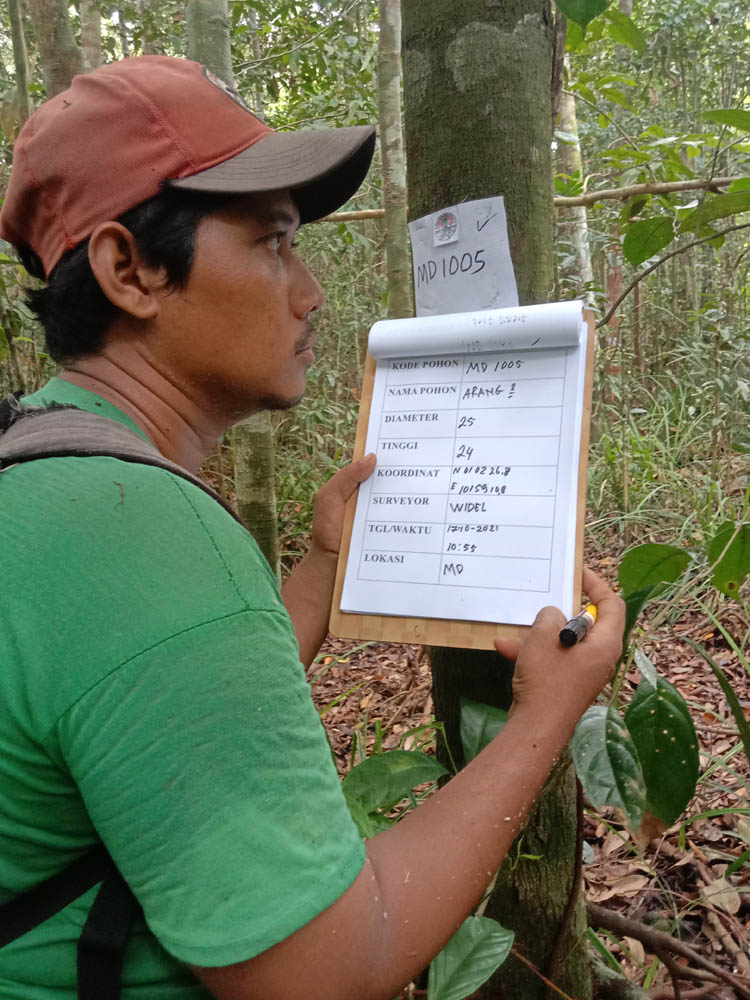 MD1005
KODE POHON MD 1005
NAMA POHON ARANG²
DIAMETER 25
TINGGI 24
KOORDINAT N 01 02 26.8
E 101 59 10,8
SURVEYOR WIDEL
TGL/WAKTU 17-10-2021
10:55
LOKASI MD